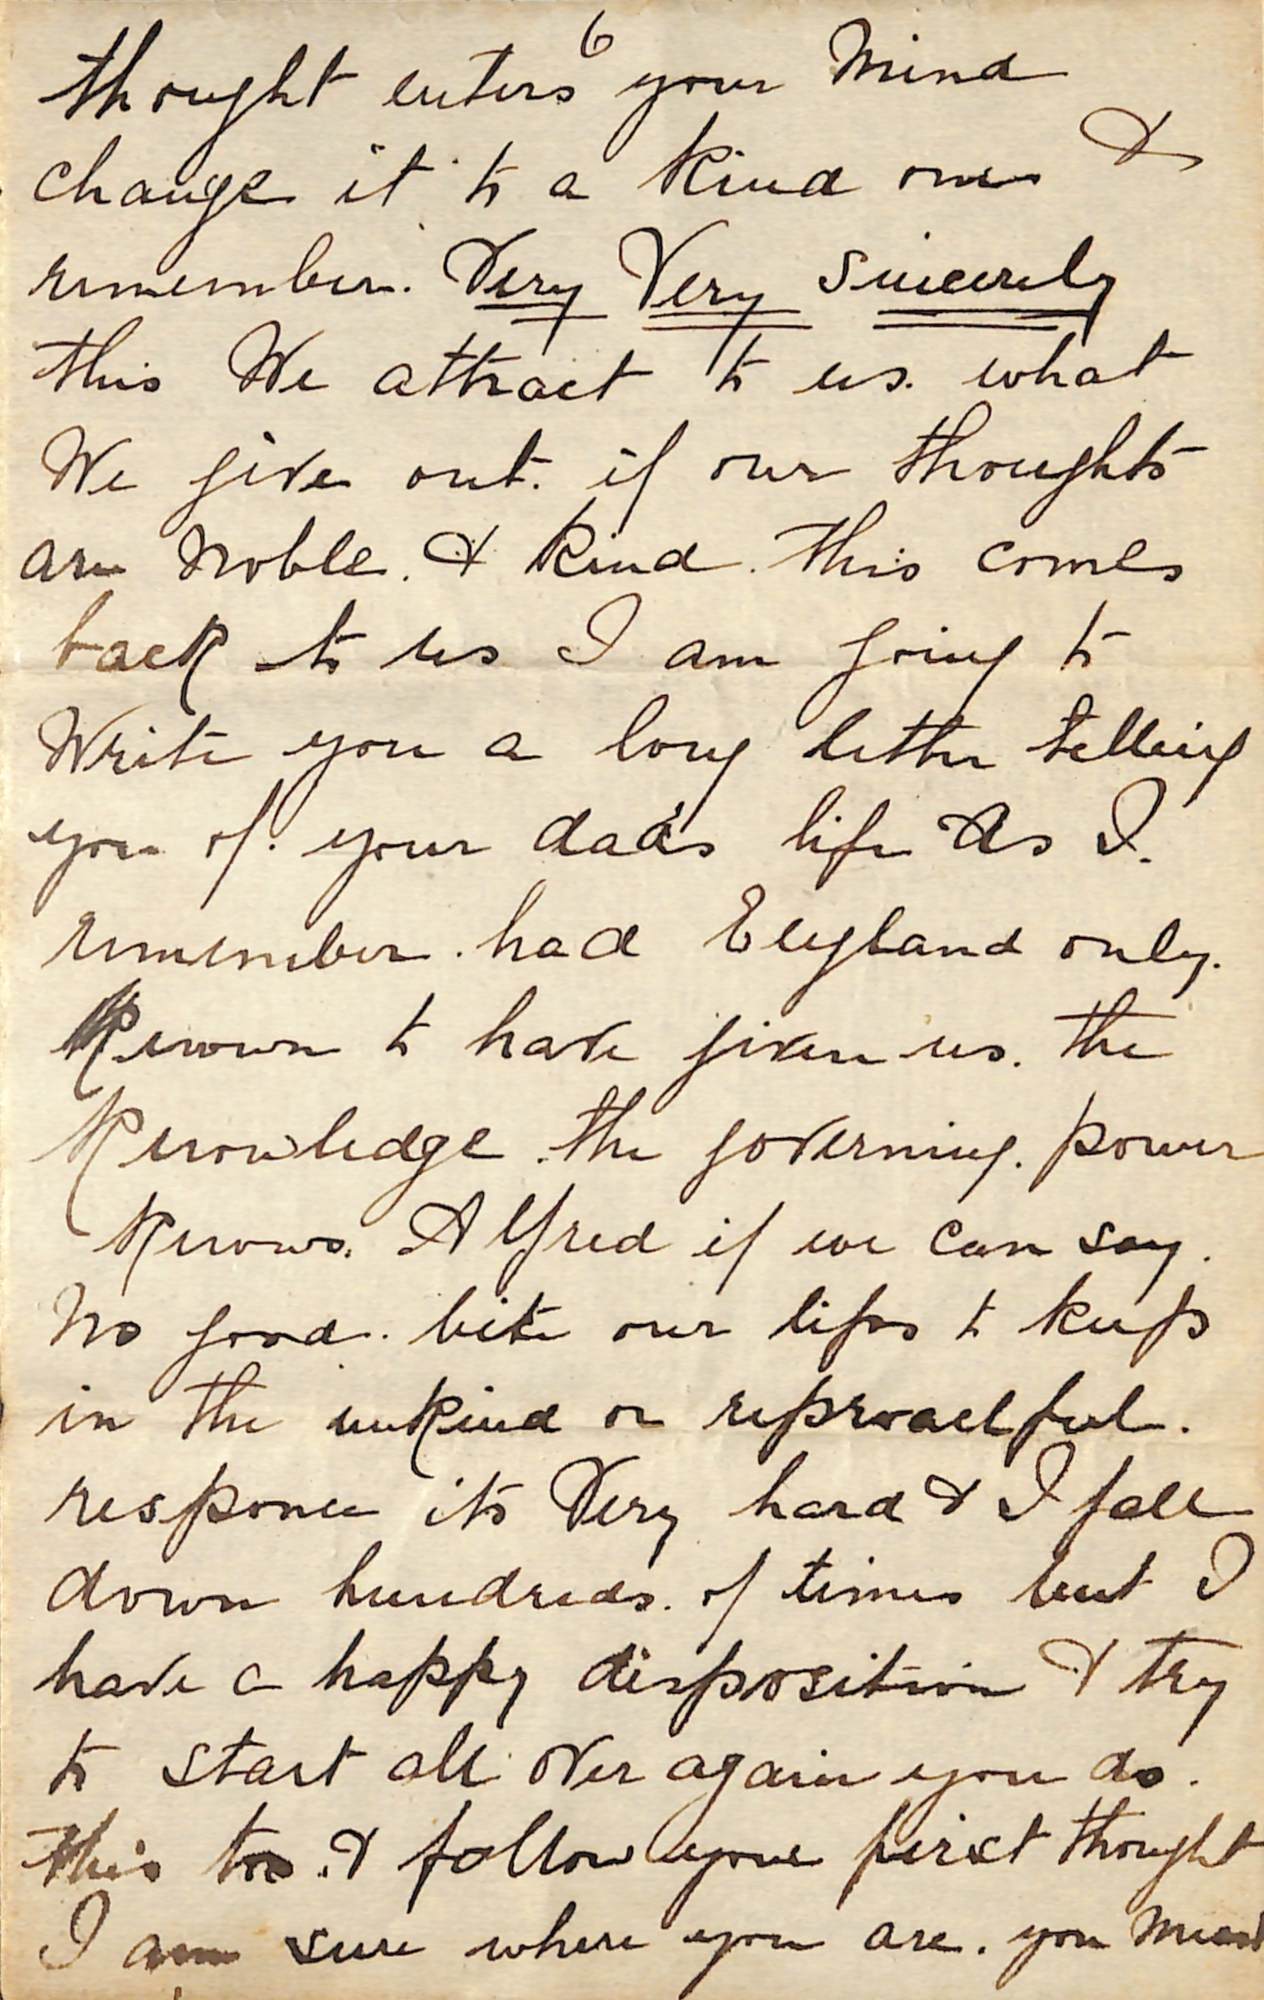 6
thought enters your Mind
change it to a kind one &
remember. Very Very sincerely
this We attract to us. what
We give out. if our thoughts
are Noble. & kind. this comes
back to us I am going to
Write you a long letter telling
you of. your dad's life As I.
remember. had England only.
Known to have given us. the
Knowledge. the governing. power
Knows. Alfred if we can say.
No good. bite our lips to keep
in the unkind or reproachful.
responce its Very hard & I fall
down hundreds. of times but I
have a happy disposition & try
to start all over again you do.
this too. & follow your first thought
I am sure where you are. you must